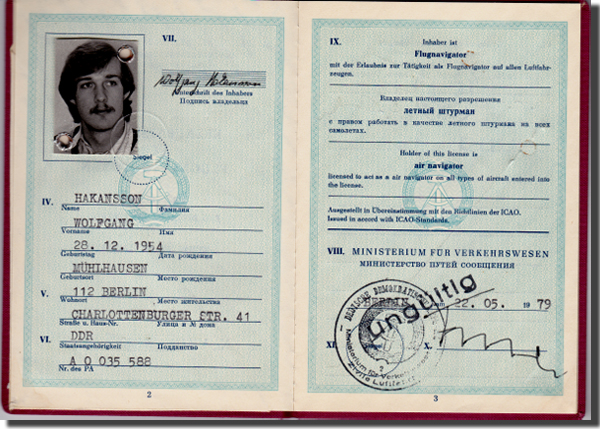 VII.
Wolfgang Hakansson
Unterschrift des Inhabers
Подпись владельца
Siegel
IV. HAKANSSON
Name Фамилия
WOLFGANG
Vorname Имя
28. 12. 1954
Geburtstag Дата рождения
MÜHLHAUSEN
Geburtsort Место рождения
V. 112 BERLIN
Wohnort Место жительства
CHARLOTTENBURGER STR. 41
Straße u. Haus-Nr. Улица и № дома
VI. DDR
Staatsangehörigkeit Подданство
A 0 035 588
Nr. des PA
2
IX. Inhaber ist
Flugnavigator
mit der Erlaubnis zur Tätigkeit als Flugnavigator auf allen Luftfahr-
zeugen.
Владелец настоящего разрешения
летный штурман
с правом работать в качестве летного штурмана на всех
самолетах.
Holder of this license is
air navigator
licensed to act as a air navigator on all types of aircraft entered into
the license.
Ausgestellt in Übereinstimmung mit den Richtlinien der ICAO.
Issued in accord with ICAO-Standards.
VIII. MINISTERIUM FÜR VERKEHRSWESEN
МИНИСТЕРСТВО ПУТЕЙ СООБЩЕНИЯ
BERLIN 22.05. 1979
ungültig
Ministerium für Verkehrswesen
Zivile Luftfahrt
XI. X.
3